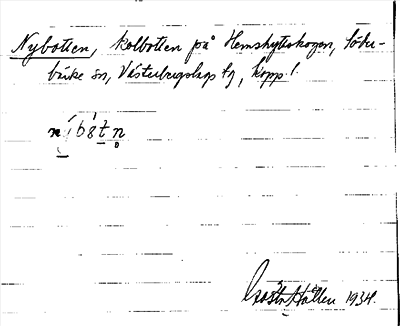 Nybotten, kolbotten på Hemshytteskogen, Söder-
bärke sn, Västerbergslags tg, Kopp. l.
Gösta Hallen 1934.